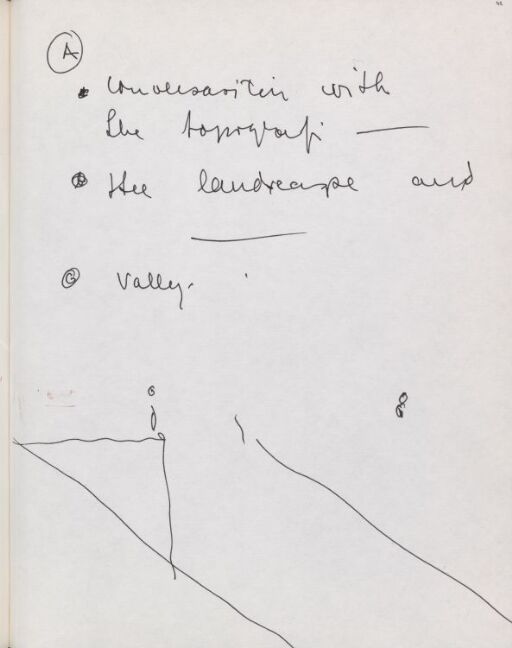 A
• Conversation with
the topografi —
• the landscape and
—
Valley.